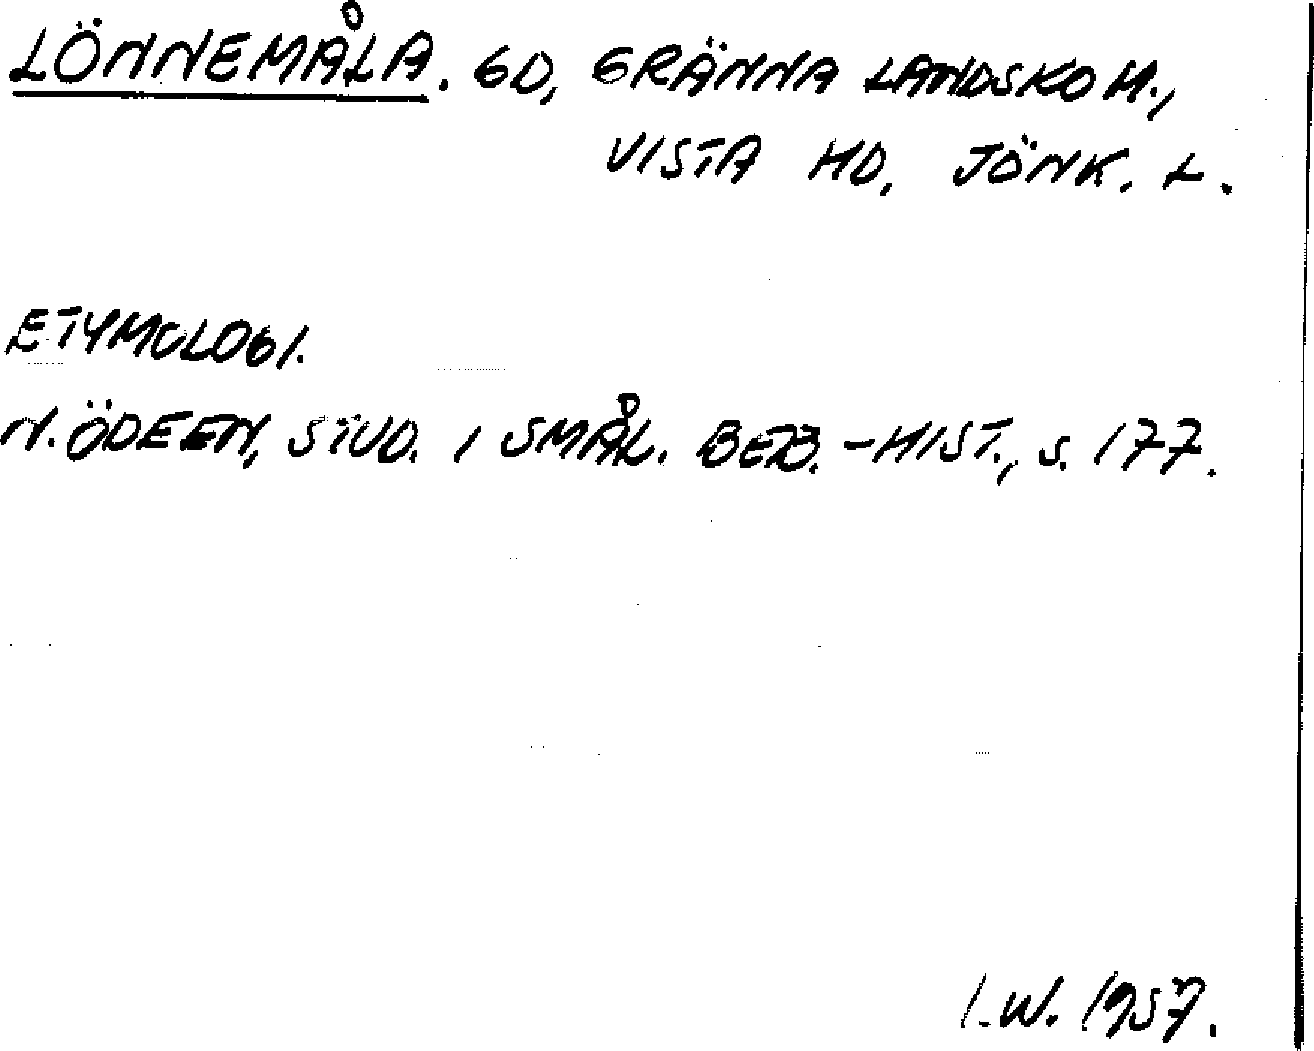 LÖNNEMÅLA. GD, GRÄNNA LANDSKOM.,
VISTA HD, JÖNK. L.
ETYMOLOGI.
N. ÖDEEN, STUD. I SMÅL. BEB.-HIST., S. 177.
I.W. 1957.